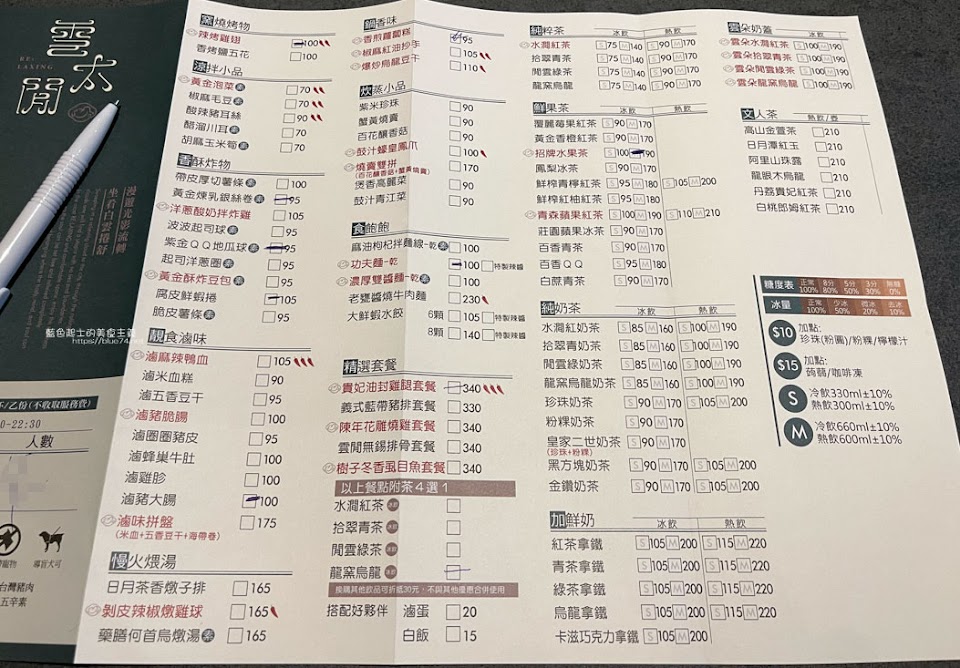 雲太閒
RE:
LAXING
漫遊光影流轉
坐看白雲捲舒
藍色起士的美食主義
https://blue74.net
/乙份(不收取服務費)
0-22:30
人數
導盲犬可
台灣豬肉
五辛素
窯燒烤物
辣烤雞翅 100
香烤鹽五花 100
涼拌小品
黃金泡菜 素 70
椒麻毛豆 素 70
酸辣豬耳絲 90
醋溜川耳 素 70
胡麻玉米筍 素 70
香酥炸物
帶皮厚切薯條 素 100
黃金煉乳銀絲卷 素 95
洋蔥酸奶拌炸雞 105
波波起司球 素 95
紫金QQ地瓜球 素 95
起司洋蔥圈 素 95
黃金酥炸豆包 素 95
腐皮鮮蝦捲 105
脆皮薯條 素 95
靚食滷味
滷麻辣鴨血 105
滷米血糕 90
滷五香豆干 95
滷豬脆腸 100
滷圈圈豬皮 95
滷蜂巢牛肚 100
滷雞胗 100
滷豬大腸 100
滷味拼盤 175
(米血+五香豆干+海帶卷)
慢火煨湯
日月茶香燉子排 165
剝皮辣椒燉雞球 165
藥膳何首烏燉湯 素 165
鍋香味
香煎蘿蔔糕 95
椒麻紅油抄手 105
爆炒烏龍豆干 110
炊蒸小品
紫米珍珠 90
蟹黃燒賣 90
百花釀香菇 90
鼓汁蠔皇鳳爪 100
燒賣雙拼 170
(百花釀香菇+蟹黃燒賣)
煲香高麗菜 90
鼓汁青江菜 90
食飽飽
麻油枸杞拌麵線-乾 素 100
功夫麵-乾 100 特製辣醬
濃厚雙醬麵-乾 素 100 特製辣醬
老甕醬燒牛肉麵 230
大鮮蝦水餃 6顆 105 特製辣醬
8顆 140 特製辣醬
精選套餐
貴妃油封雞腿套餐 340
義式藍帶豬排套餐 330
陳年花雕燒雞套餐 340
雲閒無錫排骨套餐 340
樹子冬香虱目魚套餐 340
以上餐點附茶4選1
水澗紅茶
拾翠青茶
閒雲綠茶
龍窯烏龍
換購其他飲品可折抵30元，不與其他優惠合併使用
搭配好夥伴 滷蛋 20
白飯 15
純粹茶 冰飲 熱飲
水澗紅茶 S 75 M 140 S 90 M 170
拾翠青茶 S 75 M 140 S 90 M 170
閒雲綠茶 S 75 M 140 S 90 M 170
龍窯烏龍 S 75 M 140 S 90 M 170
鮮果茶 冰飲 熱飲
覆麗莓果紅茶 S 90 M 170
黃金香橙紅茶 S 90 M 170
招牌水果茶 S 100 M 190
鳳梨冰茶 S 90 M 170
鮮榨青檸紅茶 S 95 M 180 S 105 M 200
鮮榨紅柚紅茶 S 95 M 180
青森蘋果紅茶 S 100 M 190 S 110 M 210
莊園蘋果冰茶 S 90 M 170
百香青茶 S 90 M 170
百香QQ S 95 M 180
白蔗青茶 S 90 M 170
純奶茶 冰飲 熱飲
水澗紅奶茶 S 85 M 160 S 100 M 190
拾翠青奶茶 S 85 M 160 S 100 M 190
閒雲綠奶茶 S 85 M 160 S 100 M 190
龍窯烏龍奶茶 S 85 M 160 S 100 M 190
珍珠奶茶 S 90 M 170 S 100 M 190
粉粿奶茶 S 90 M 170
皇家二世奶茶 S 90 M 170
(珍珠+粉粿)
黑方塊奶茶 S 90 M 170 S 105 M 200
金鑽奶茶 S 90 M 170 S 105 M 200
加鮮奶 冰飲 熱飲
紅茶拿鐵 S 105 M 200 S 115 M 220
青茶拿鐵 S 105 M 200 S 115 M 220
綠茶拿鐵 S 105 M 200 S 115 M 220
烏龍拿鐵 S 105 M 200 S 115 M 220
卡滋巧克力拿鐵 S 105 M 200
雲朵奶蓋 冰飲
雲朵水澗紅茶 S 100 M 190
雲朵拾翠青茶 S 100 M 190
雲朵閒雲綠茶 S 100 M 190
雲朵龍窯烏龍 S 100 M 190
文人茶 熱飲/壺
高山金萱茶 210
日月潭紅玉 210
阿里山珠露 210
龍眼木烏龍 210
丹荔貴妃紅茶 210
白桃郎姆紅茶 210
糖度表 正常100% 8分80% 5分50% 3分30% 無糖0%
冰量 正常100% 少冰50% 微冰20% 去冰10%
$10 加點:
珍珠(粉圓)/粉粿/檸檬汁
$15 加點:
蒟蒻/咖啡凍
S 冷飲330ml±10%
熱飲300ml±10%
M 冷飲660ml±10%
熱飲600ml±10%